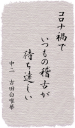 コロナ禍で
いつもの稽古が
待ち遠しい
中二 吉田白唯華